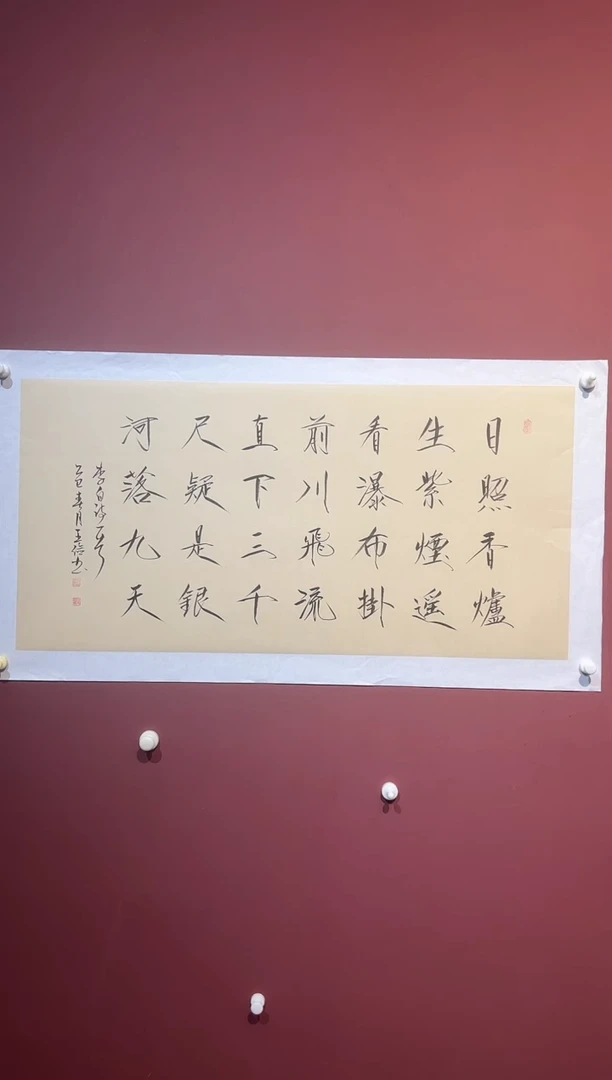 日照香爐
生紫煙遥
看瀑布掛
前川飛流
直下三千
尺疑是銀
河落九天
李白詩一首
乙巳春月王信书